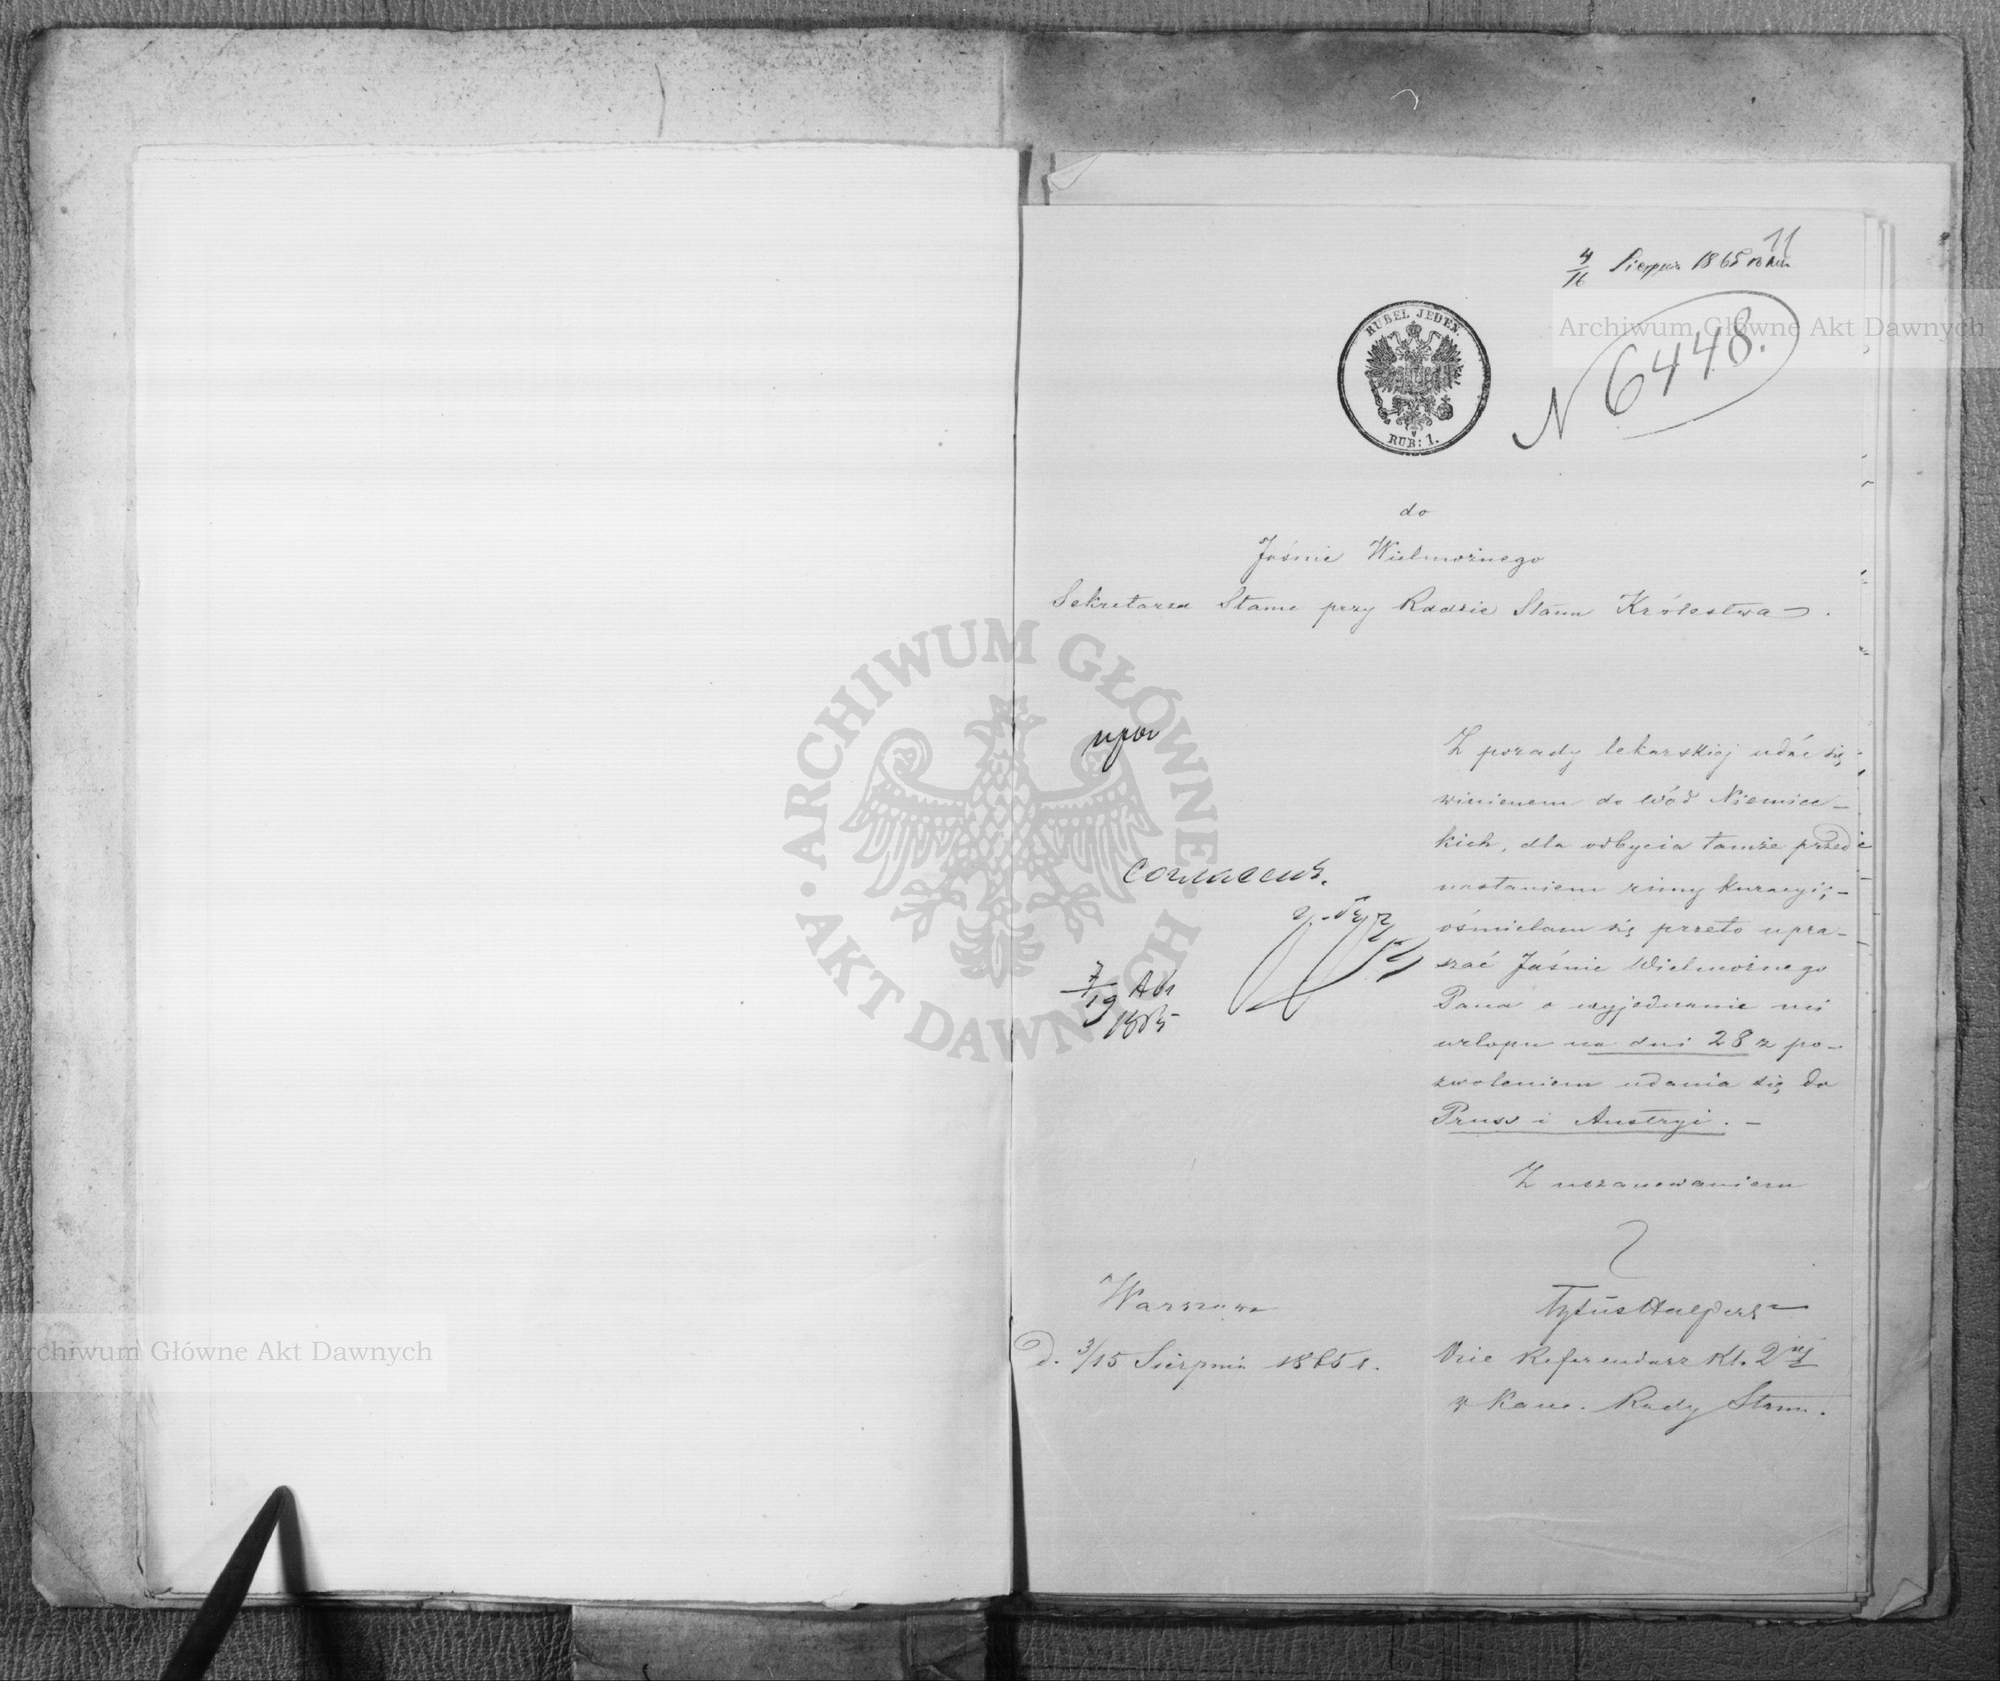 11
4/16 Sierpnia 1865 roku
N 6448.
RUBEL JEDEN.
RUB: 1.
do
Jaśnie Wielmożnego
Sekretarza Stanu przy Radzie Stanu Królestwa.
Z porady lekarskiej udać się
winienem do Wód Niemiec-
kich, dla odbycia tamże przed
nastaniem zimy kuracyi;-
ośmielam się przeto upra-
szać Jaśnie Wielmożnego
Pana o wyjednanie mi
urlopu na dni 28 z po-
zwoleniem udania się do
Pruss i Austryi. -
Z uszanowaniem
Tytus Halpert
Vice Referendarz Kl. 2iej
w Kanc. Rady Stanu.
Warszawa
d. 3/15 Sierpnia 1865 r.
Согласенъ.
7/19 Авг
1865
ARCHIWUM GŁÓWNE AKT DAWNYCH
Archiwum Główne Akt Dawnych
Archiwum Główne Akt Dawnych